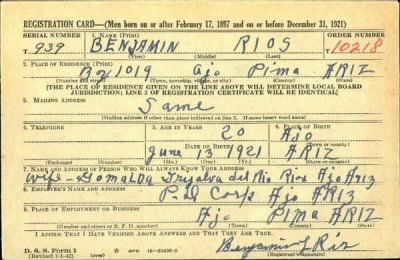 REGISTRATION CARD—(Men born on or after February 17, 1897 and on or before December 31, 1921)
SERIAL NUMBER 1. NAME (Print) ORDER NUMBER
T 939 BENJAMIN RIOS 10218
(First) (Middle) (Last)
2. PLACE OF RESIDENCE (Print)
Bx 1019 Ajo Pima ARIZ
(Number and street) (Town, township, village, or city) (County) (State)
[THE PLACE OF RESIDENCE GIVEN ON THE LINE ABOVE WILL DETERMINE LOCAL BOARD
JURISDICTION; LINE 2 OF REGISTRATION CERTIFICATE WILL BE IDENTICAL]
3. MAILING ADDRESS
Same
[Mailing address if other than place indicated on line 2. If same insert word same]
4. TELEPHONE 5. AGE IN YEARS 6. PLACE OF BIRTH
20 Ajo
DATE OF BIRTH (Town or county)
June 13 1921 ARIZ
(Exchange) (Number) (Mo.) (Day) (Yr.) (State or country)
7. NAME AND ADDRESS OF PERSON WHO WILL ALWAYS KNOW YOUR ADDRESS
wife - del Rio Rios Ajo Ariz
8. EMPLOYER'S NAME AND ADDRESS
P.D. Corp Ajo ARIZ
9. PLACE OF EMPLOYMENT OR BUSINESS
Ajo Pima ARIZ
(Number and street or R. F. D. number) (Town) (County) (State)
I AFFIRM THAT I HAVE VERIFIED ABOVE ANSWERS AND THAT THEY ARE TRUE.
D. S. S. Form 1
(Revised 1-1-42) (over)
Benjamin